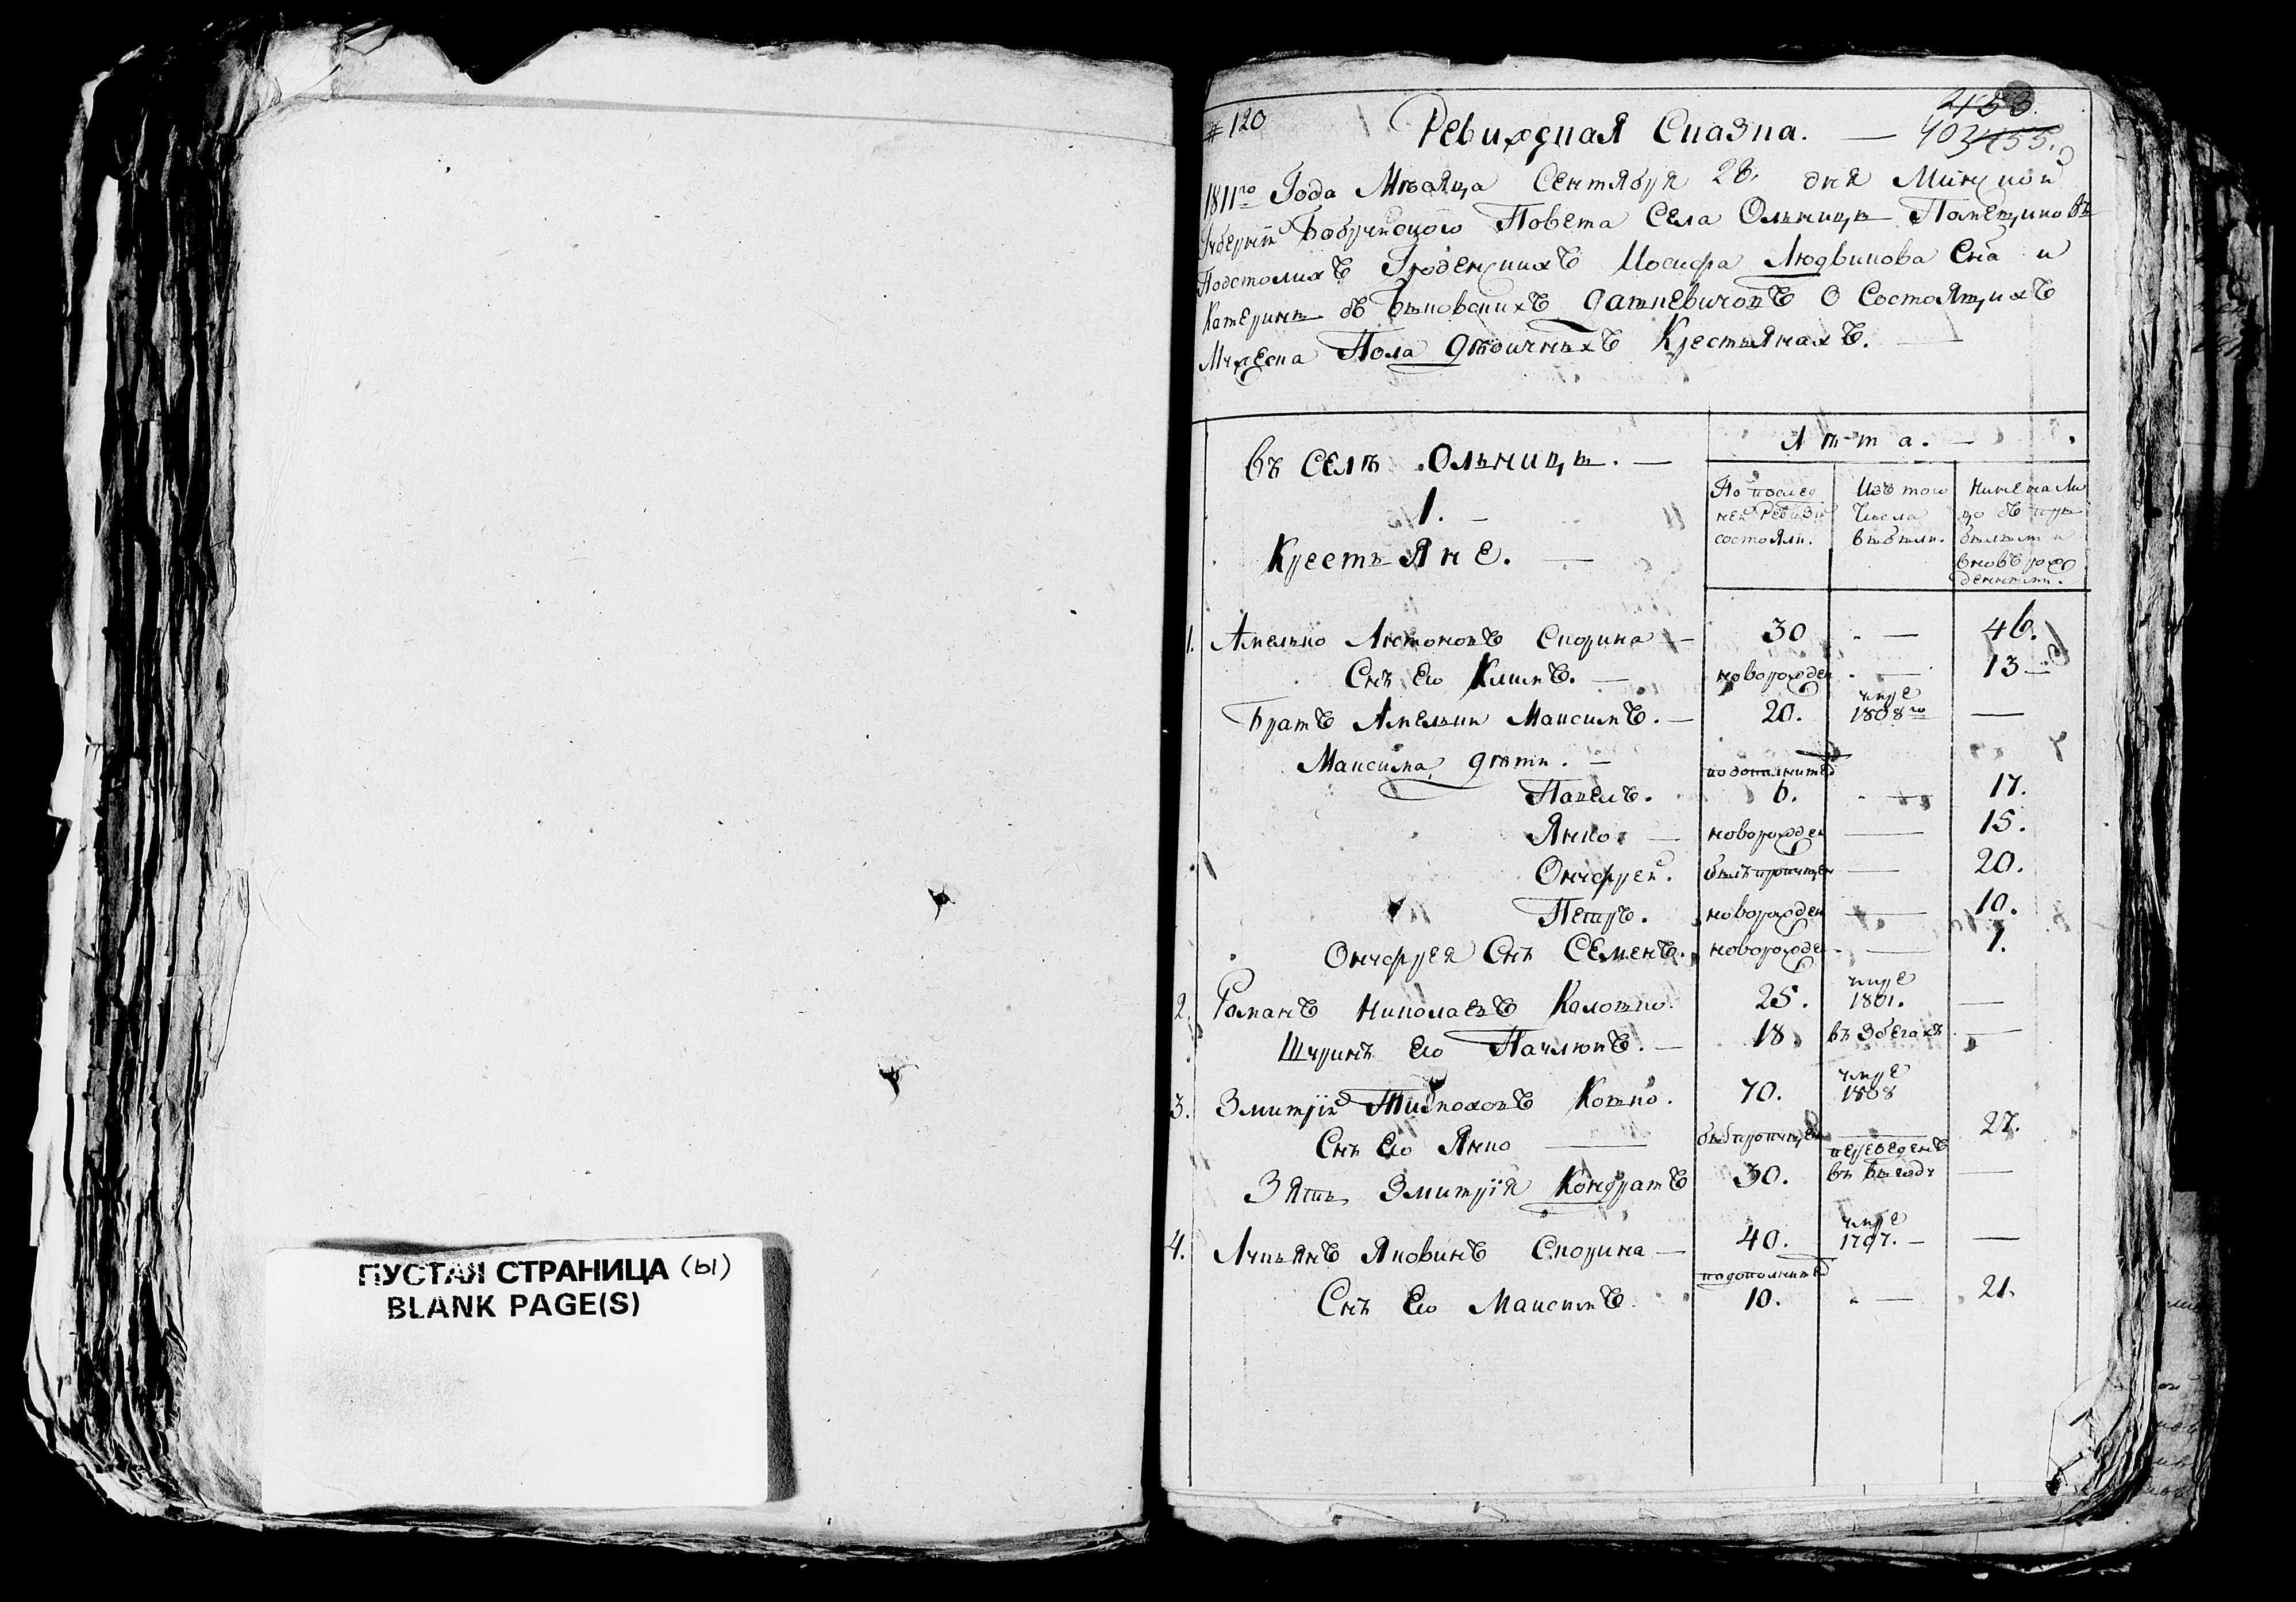 ПУСТАЯ СТРАНИЦА (ы)
BLANK PAGE(S)
# 120
Ревижская Сказка. —
1811го Года Месяца Сентября 28. дня Минской
Губерніи Бобруйского Повета Села Ольницы Помещиковъ
Подстолихъ Гроденскихъ Иосифа Людвикова Сна и
Катерины зъ Быковскихъ Дашкевичовъ О Состоящихъ
Мужеска Пола дѣдичныхъ Крестьянахъ. —
Въ Селѣ Ольницы. —
1. —
Крестьяне. —
Лѣта. —
По послед
ней Ревизіи
состояли.
Изъ того
Числа
выбыли.
Ныне на Ли
цо зъ при
былыми и
вновь рож
денными.
1. Амелько Антоновъ Скорина — 30 — 46.
Снъ Его Климъ. — новорожден — 13 —
Братъ Амельки Максимъ. — 20. умре 1808го —
Максима дѣти. —
Павелъ. по дополнител 6. — 17.
Янко — новорожден — 15.
Онуфрей. былъ пропущен — 20.
Петръ. новорожден — 10.
Онуфрея Снъ Семенъ. новорожден — 1.
2. Романъ Николаевъ Калошко. 25. умре 1801. —
Шуринъ Его Павлюкъ. — 18 въ Збегахъ —
3. Змитрій Тимоховъ Кошко. 70. умре 1808
Снъ Его Янко — былъ пропущен — 27.
Зять Змитрія Кондратъ 30. переведенъ въ —
4. Лукьянъ Яковинъ Скорина — 40. умре 1797. — —
Снъ Его Максимъ. по дополнител 10. — 21.